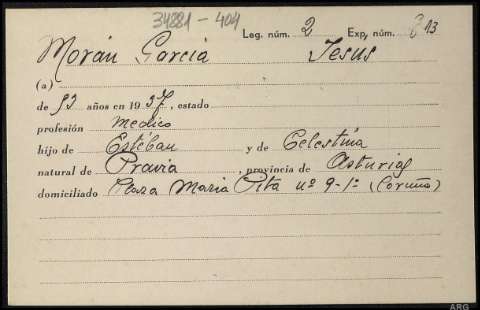 34881-404
Leg. núm. 2 Exp. núm. 813
Morán García Jesus
(a)
de 53 años en 1937, estado
profesión Medico
hijo de Estéban y de Celestina
natural de Pravia, provincia de Asturias
domiciliado Plaza Maria Pita nº 9-1º (Coruña)
ARG